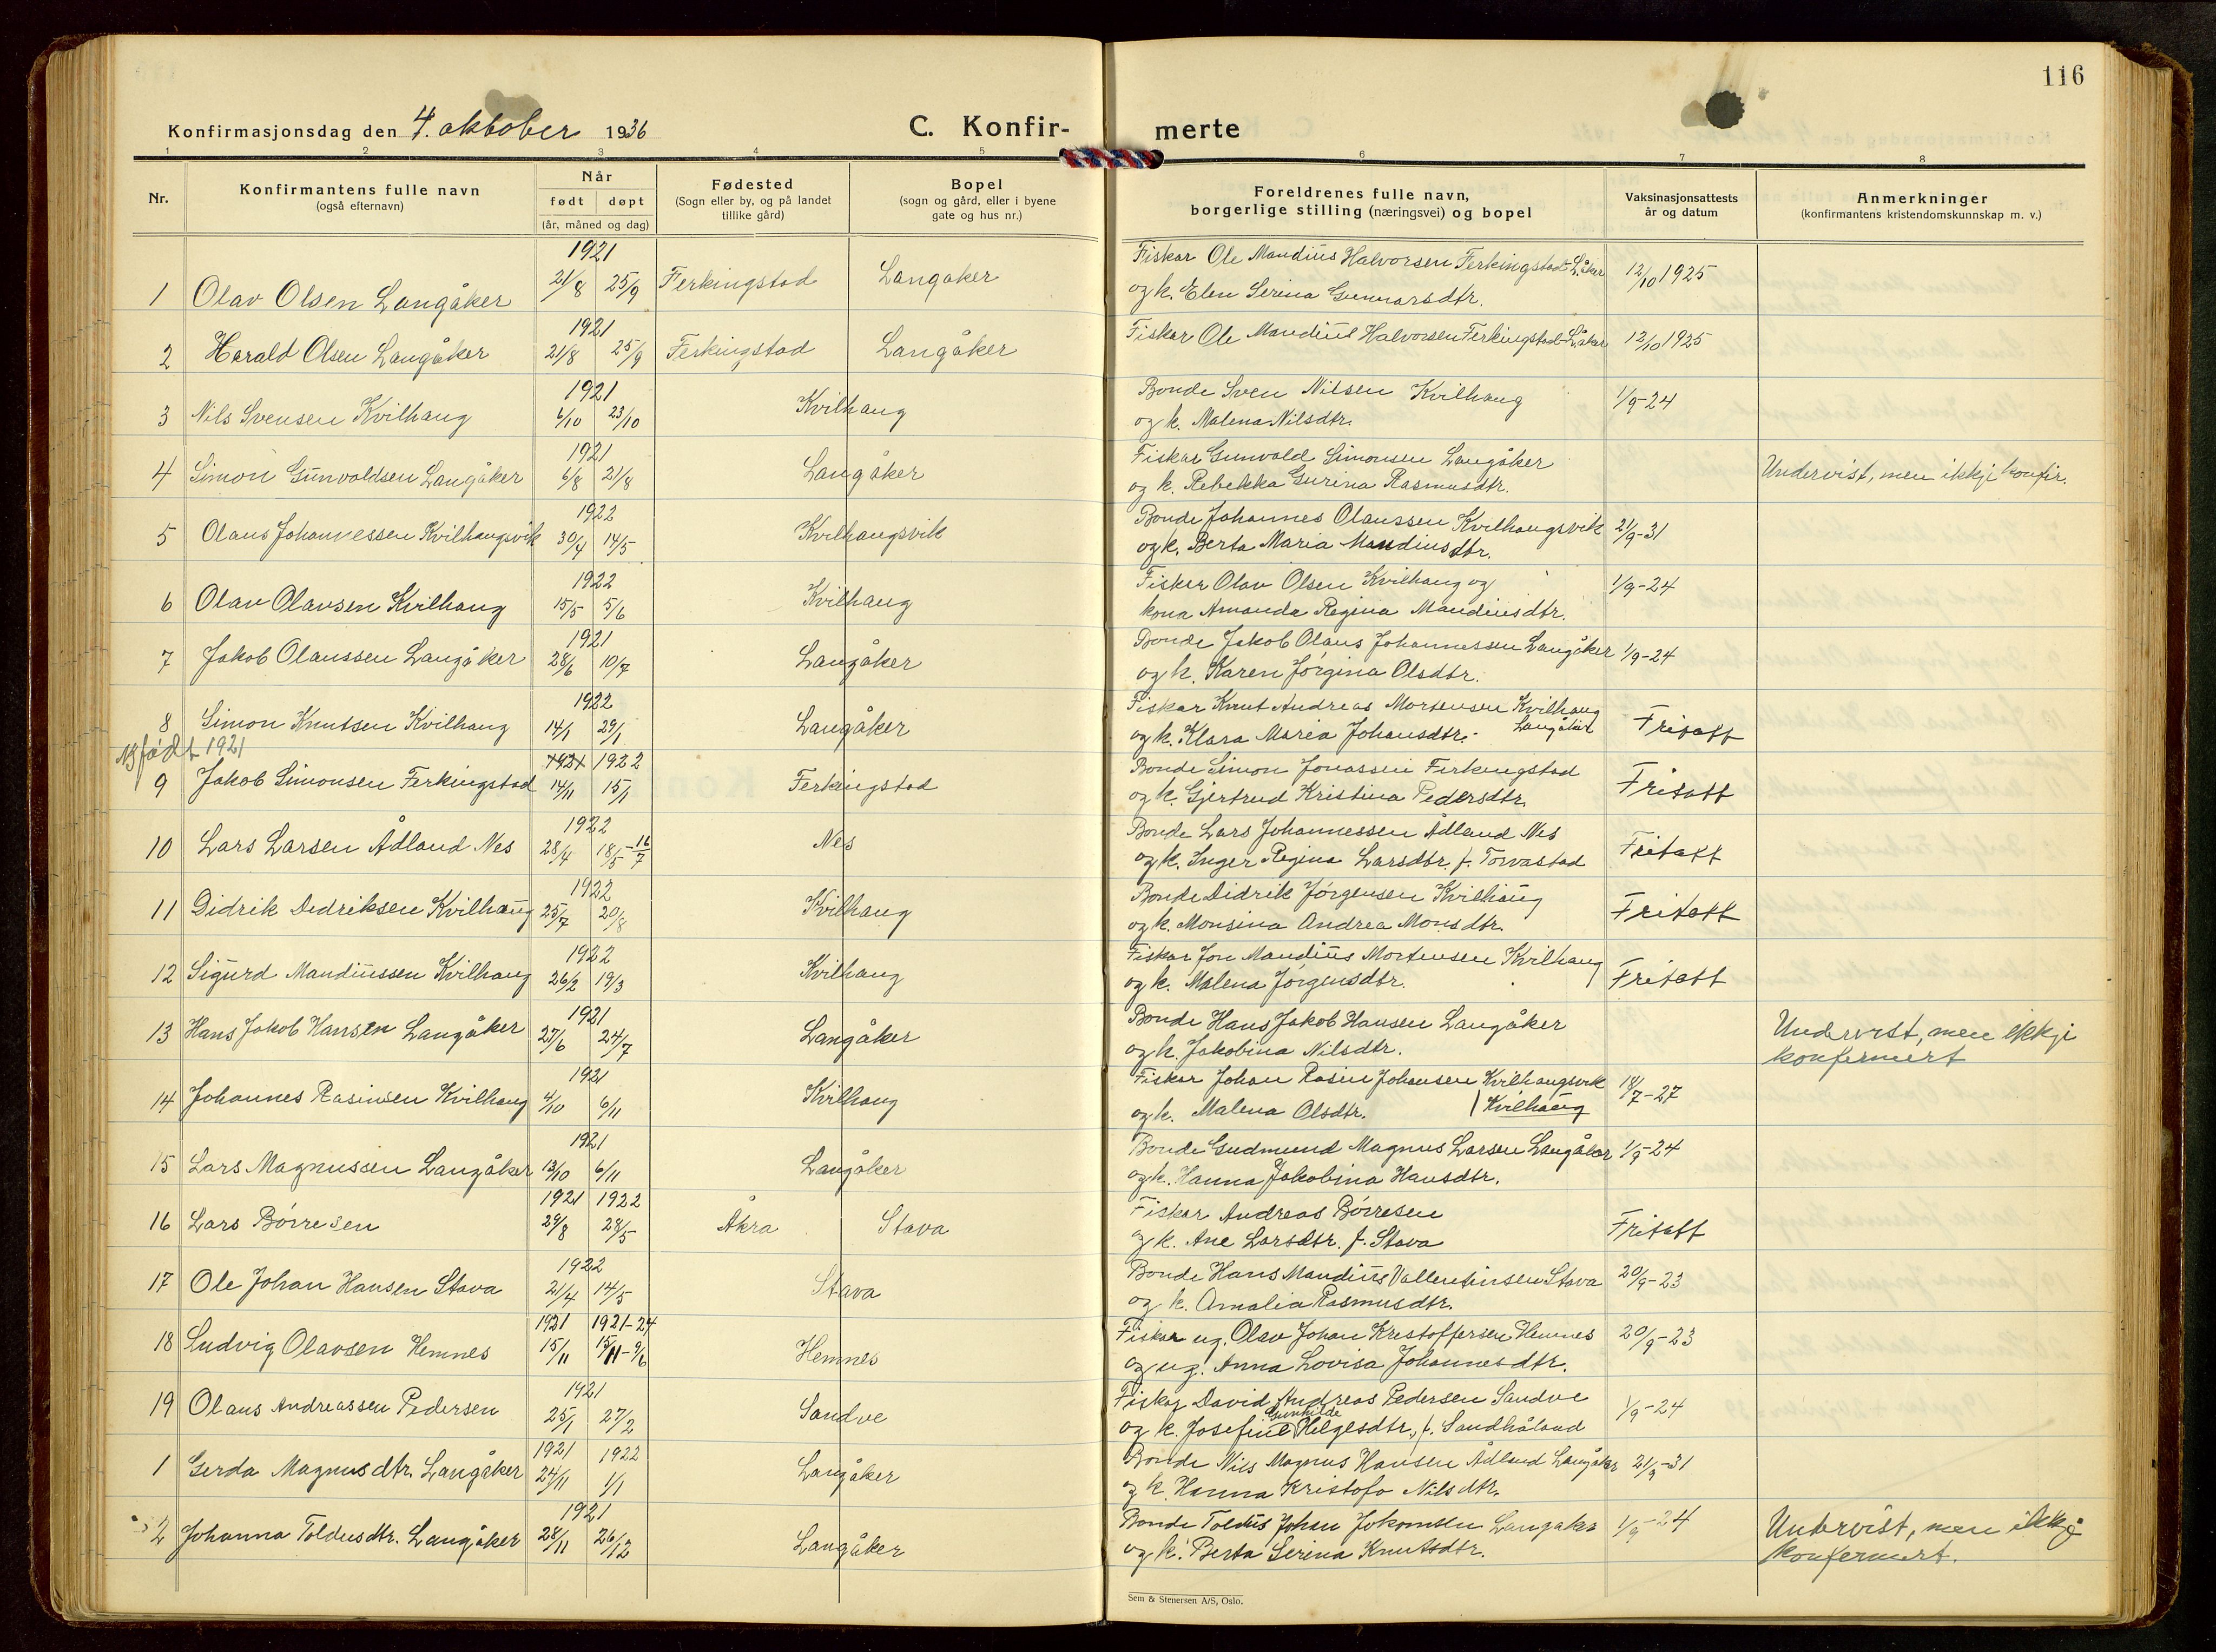 116
Konfirmasjonsdag den 4. oktober 1936
C. Konfir- merte
1 2 3 4 5 6 7 8
Nr.
Konfirmantens fulle navn
(også efternavn)
Når
født døpt
(år, måned og dag)
Fødested
(Sogn eller by, og på landet
tillike gård)
Bopel
(sogn og gård, eller i byene
gate og hus nr.)
Foreldrenes fulle navn,
borgerlige stilling (næringsvei) og bopel
Vaksinasjonsattests
år og datum
Anmerkninger
(konfirmantens kristendomskunnskap m. v.)
1921
1 Olav Olsen Langåker 21/8 25/9 Ferkingstad Langåker
Fiskar Ole Mandius Halvorsen Ferkingstad-L.åker 12/10 1925
og k. Elen Serina Gunnarsdtr.
1921
2 Harald Olsen Langåker 21/8 25/9 Ferkingstad Langåker
Fiskar Ole Mandius Halvorsen Ferkingstad-L.åker 12/10 1925
1921
3 Nils Svensen Kvilhaug 6/10 23/10 Kvilhaug
Bonde Sven Nilsen Kvilhaug 1/9-24
og k. Malena Nilsdtr.
1921
4 Simon Gunvaldsen Langåker 6/8 21/8 Langåker
Fiskar Gunvald Simonsen Langåker
og k. Rebekka Gurina Rasmusdtr. Undervist, men ikkje konfir.
1922
5 Olaus Johannessen Kvilhaugsvik 30/4 14/5 Kvilhaugsvik
Bonde Johannes Olaussen Kvilhaugsvik 21/9-31
og k. Berta Maria Mandiusdtr.
1922
6 Olav Olavsen Kvilhaug 15/5 5/6 Kvilhaug
Fiskar Olav Olsen Kvilhaug og 1/9-24
kona Amanda Regina Mandiusdtr.
1921
7 Jakob Olaussen Langåker 28/6 10/7 Langåker
Bonde Jakob Olaus Johannessen Langåker 1/9-24
og k. Karen Jørgina Olsdtr.
1922
8 Simon Knutsen Kvilhaug 14/1 29/1 Langåker
Fiskar Knut Andreas Mortensen Kvilhaug
og k. Klara Maria Johansdtr. Langåker Fritatt
født 1921
1921 1922
9 Jakob Simonsen Ferkingstad 14/11 15/1 Ferkingstad
Bonde Simon Jonassen Ferkingstad Fritatt
og k. Gjertrud Kristina Pedersdtr.
1922
10 Lars Larsen Ådland Nes 28/4 18/5-16/7 Nes
Bonde Lars Johannessen Ådland Nes Fritatt
og k. Inger Regina Larsdtr. f. Torvastad
1922
11 Didrik Didriksen Kvilhaug 25/7 20/8 Kvilhaug
Bonde Didrik Jørgensen Kvilhaug Fritatt
og k. Monsina Andrea Monsdtr.
1922
12 Sigurd Mandiussen Kvilhaug 26/2 19/3 Kvilhaug
Fiskar Jon Mandius Mortensen Kvilhaug
og k. Malena Jørgensdtr. Fritatt
1921
13 Hans Jakob Hansen Langåker 27/6 24/7 Langåker
Bonde Hans Jakob Hansen Langåker Undervist, men ikkje
og k. Jakobina Nilsdtr. konfirmert
1921
14 Johannes Rasinsen Kvilhaug 4/10 6/11 Kvilhaug
Fiskar Johan Rasin Johansen Kvilhaugsvik 18/7-27
og k. Malena Olsdtr. Kvilhaug
1921
15 Lars Magnussen Langåker 13/10 6/11 Langåker
Bonde Gudmund Magnus Larsen Langåker 1/9-24
og k. Hanna Jakobina Hansdtr.
1921 1922
16 Lars Børresen 29/8 28/5 Åkra Stava
Fiskar Andreas Børresen Fritatt
og k. Ane Larsdtr. f. Stava
1922
17 Ole Johan Hansen Stava 21/4 14/5 Stava
Bonde Hans Mandius Vallentinsen Stava 20/9-23
og k. Amalia Rasmusdtr.
1921 1921-24
18 Ludvig Olavsen Hemnes 15/11 15/11-9/6 Hemnes
Fiskar ug. Olav Johan Kristoffersen Hemnes 20/9-23
og ug. Anna Lovisa Johannesdtr.
1921
19 Olaus Andreassen Pedersen 25/1 27/2 Sandve
Fiskar David Andreas Pedersen Sandve 1/9-24
Gunhilde
og k. Josefine Helgesdtr., f. Sandhåland
1921 1922
1 Gerda Magnusdtr. Langåker 24/11 1/1 Langåker
Bonde Nils Magnus Hansen Ådland Langåker 21/9-31
og k. Hanna Kristofa Nilsdtr.
1921
2 Johanna Toldusdtr. Langåker 28/11 26/12 Langåker
Bonde Toldus Johan Jakobsen Langåker 1/9-24 Undervist, men ikkje
og k. Berta Serina Knutsdtr. konfirmert.
Sem & Stenersen A/S, Oslo.